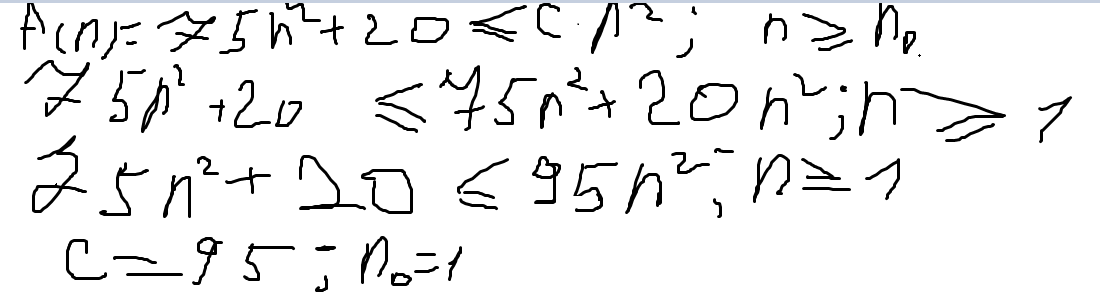 A(n)=75n²+20≤c·n²; n≥n₀
75n²+20≤75n²+20n²; n≥1
75n²+20≤95n²; n≥1
c=95; n₀=1